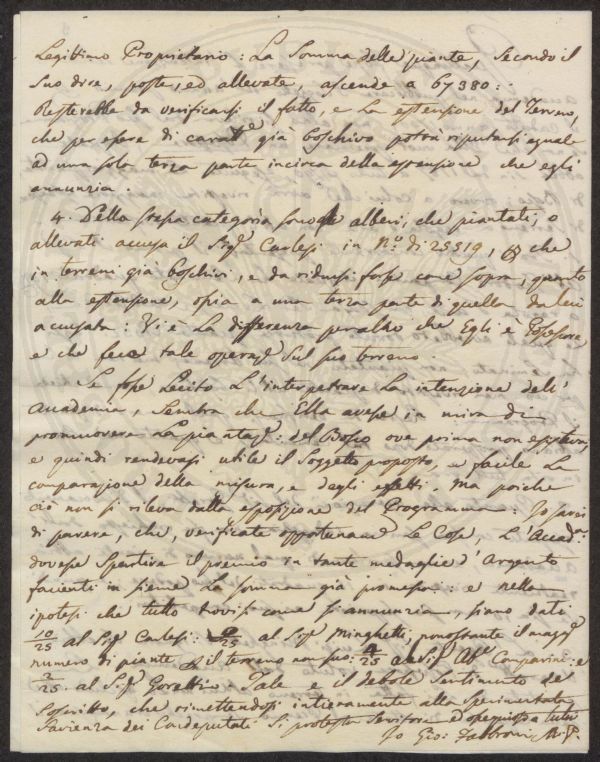 Legittimo Proprietario: La Somma delle piante, Secondo il
Suo dire, poste, ed allevate, ascende a 67380:
Resterebbe da verificarsi il fatto, e La estensione del Terreno,
che per essere di caratt.e già boschivo potrà riputarsi eguale
ad una sola terza parte incirca della estensione che egli
annunzia.
4. Della stessa categoria sono gli alberi, che piantati, o
allevati accusa il Sig.r Carlesi in N.o di 25319, che
in terreni già boschivi, e da ridursi forse come sopra, quanto
alla estensione, ossia a una terza parte di quella da lui
accusata: Vi è La differenza peraltro che Egli è Possessore,
e che fece tale operaz.e Sul suo terreno.
Se fosse Lecito L'interpetrare La intenzione dell'
Accademia, Sembra che Ella avesse in mira di
promuovere La piantaz.e del Bosco ove prima non esisteva,
e quindi rendevasi utile il Soggetto proposto, e facile La
comparazione della misura, e degli effetti. Ma poichè
ciò non si rileva dalla esposizione del Programma: Io sarei
di parere, che, verificate opportunam.e Le Cose, L'Accad.a
dovesse Spartire il premio in tante medaglie d'Argento
facienti in sieme La somma già promessa: e nella
ipotesi che tutto trovisi come si annunzia, siano dati
10/25 al Sig.r Carlesi: /25 al Sig.r Minghetti, nonostante il magg.r
numero di piante, il terreno non suo: 4/25 al Sig.r Ab.e Comparini: e
2/25 al S.r Gorettino. Tale è il debole Sentimento del
Soscritto, che rimettendosi intieramente alla Sperimentata
Savienza dei Condeputati Si protesta Servitore Ossequioso a tutti
Io Gio: Fabbroni,